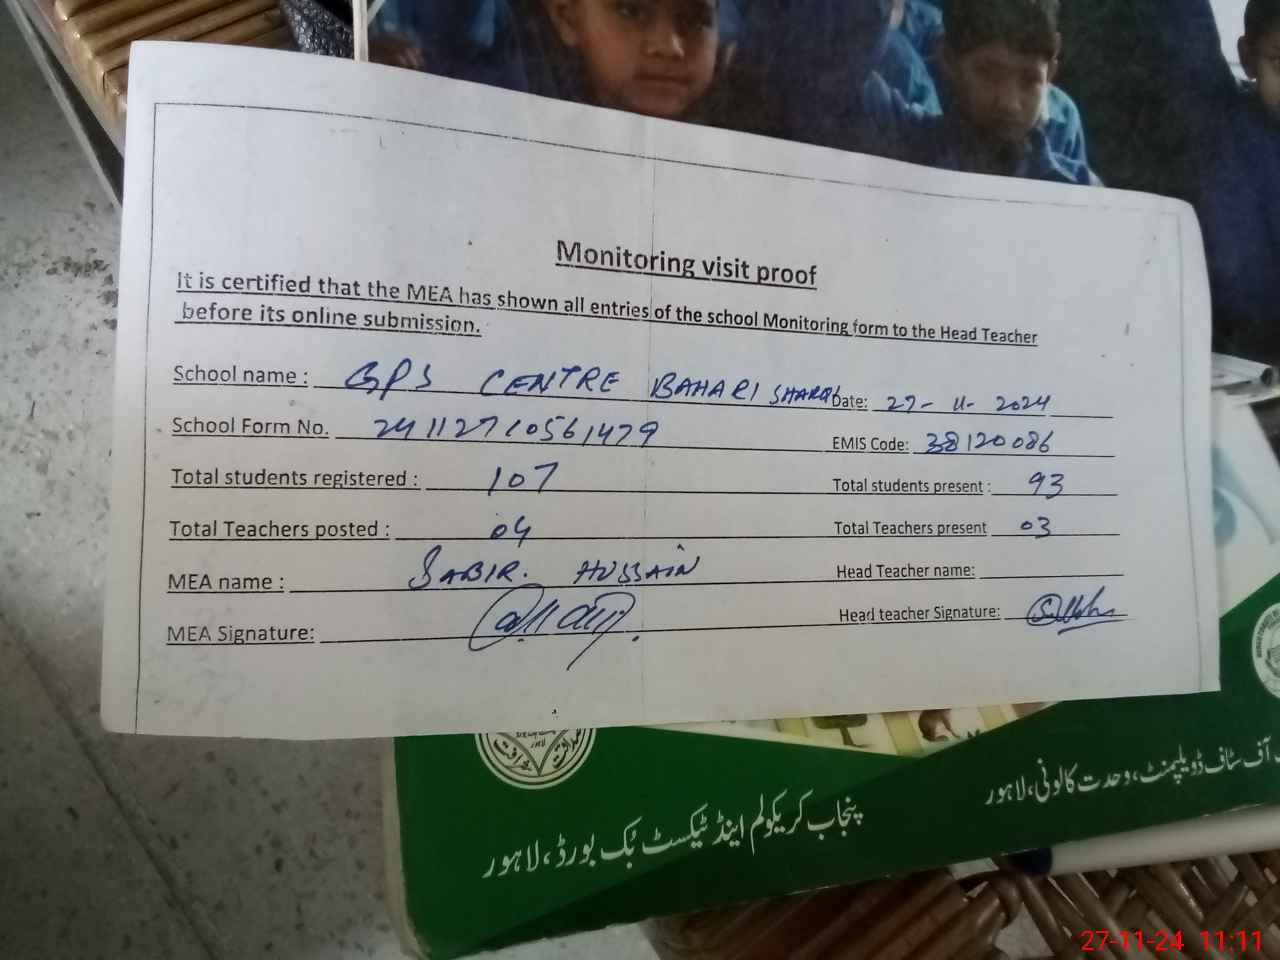 Monitoring visit proof
It is certified that the MEA has shown all entries of the school Monitoring form to the Head Teacher
before its online submission.
School name : GPS CENTRE BAHARI SHARQI Date: 27-11-2024
School Form No. 241127105561479 EMIS Code: 38120086
Total students registered : 107 Total students present : 93
Total Teachers posted : 04 Total Teachers present 03
MEA name : SABIR. HUSSAIN Head Teacher name:
MEA Signature: Head teacher Signature:
آف سٹاف ڈویلپمنٹ، وحدت کالونی، لاہور
پنجاب کریکولم اینڈ ٹیکسٹ بُک بورڈ، لاہور
27-11-24 11:11